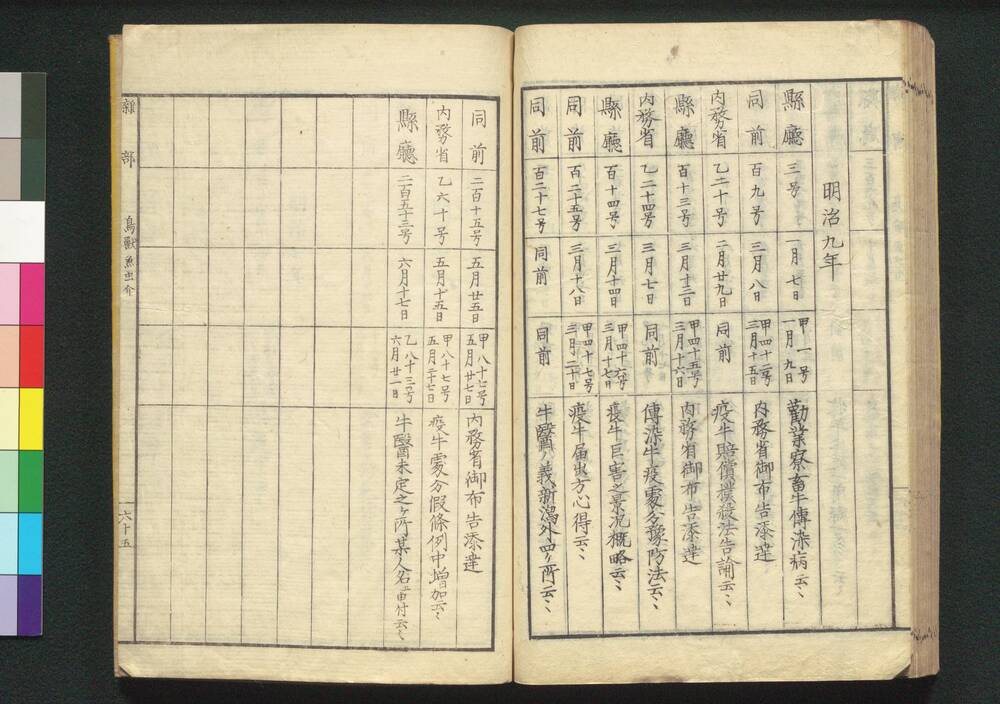 明治九年
縣廳 三号 一月七日 甲一号 一月九日 勸業寮畜牛傳染病云〻
同前 百九号 三月八日 甲四十二号 三月十五日 内務省御布告添達
内務省 乙二十号 二月廿九日 同前 疫牛賠償撲殺法告諭云〻
縣廳 百十三号 三月十二日 甲四十五号 三月十六日 内務省御布告添達
内務省 乙二十四号 三月七日 同前 傳染牛疫處分豫防法云〻
縣廳 百十四号 三月十四日 甲四十六号 三月十七日 疫牛巨害之景况概略云〻
同前 百二十五号 三月十八日 甲四十七号 三月二十日 疫牛届出方心得云〻
同前 百二十七号 同前 同前 牛醫ノ義新潟外四ヶ所云〻
同前 二百十五号 五月廿五日 甲八十七号 五月廿七日 内務省御布告添達
内務省 乙六十号 五月十五日 甲八十七号 五月二十七日 疫牛處分假條例中増加云〻
縣廳 二百五十三号 六月十七日 乙八十三号 六月廿一日 牛醫未定之ヶ所某人名申付云〻
雜部 鳥獸魚虫介 六十五